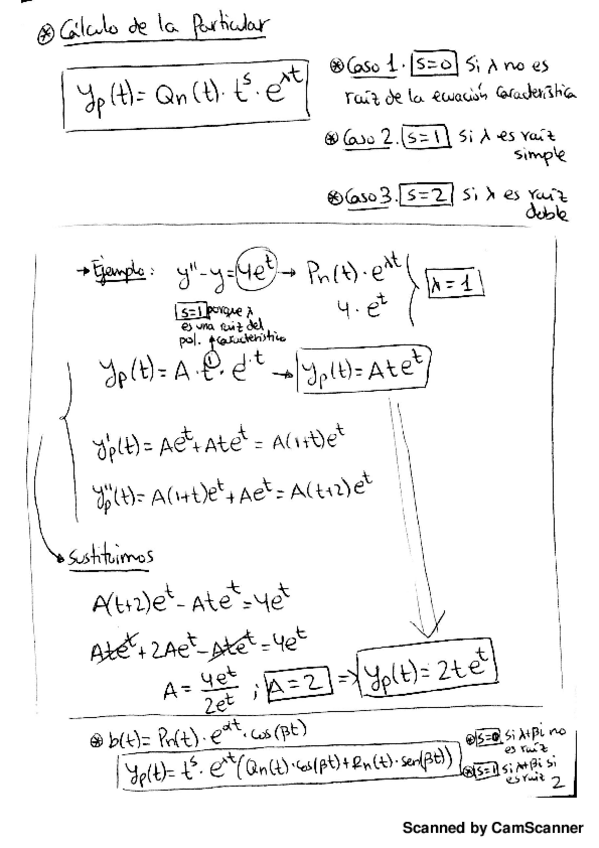 ⊛ Cálculo de la Particular
yp(t) = Qn(t) · t^s · e^λt
⊛ Caso 1. s=0 Si λ no es
raíz de la ecuación característica
⊛ Caso 2. s=1 Si λ es raíz
simple
⊛ Caso 3. s=2 Si λ es raíz
doble
→ Ejemplo: y'' - y = 4e^t → Pn(t) · e^λt
4 · e^t
λ = 1
s=1 porque λ
es una raíz del
pol. característico
yp(t) = A · t^1 · e^1·t → yp(t) = Ate^t
y'p(t) = Ae^t + Ate^t = A(1+t)e^t
y''p(t) = A(1+t)e^t + Ae^t = A(t+2)e^t
Sustituimos
A(t+2)e^t - Ate^t = 4e^t
Ate^t + 2Ae^t - Ate^t = 4e^t
A = 4e^t / 2e^t ; A = 2 ⇒ yp(t) = 2te^t
⊛ b(t) = Pn(t) · e^αt · cos(βt)
yp(t) = t^s · e^λt (Qn(t) · cos(βt) + Rn(t) · sen(βt))
⊛ s=0 si λ+βi no
es raíz
⊛ s=1 si λ+βi si
es raíz
2
Scanned by CamScanner